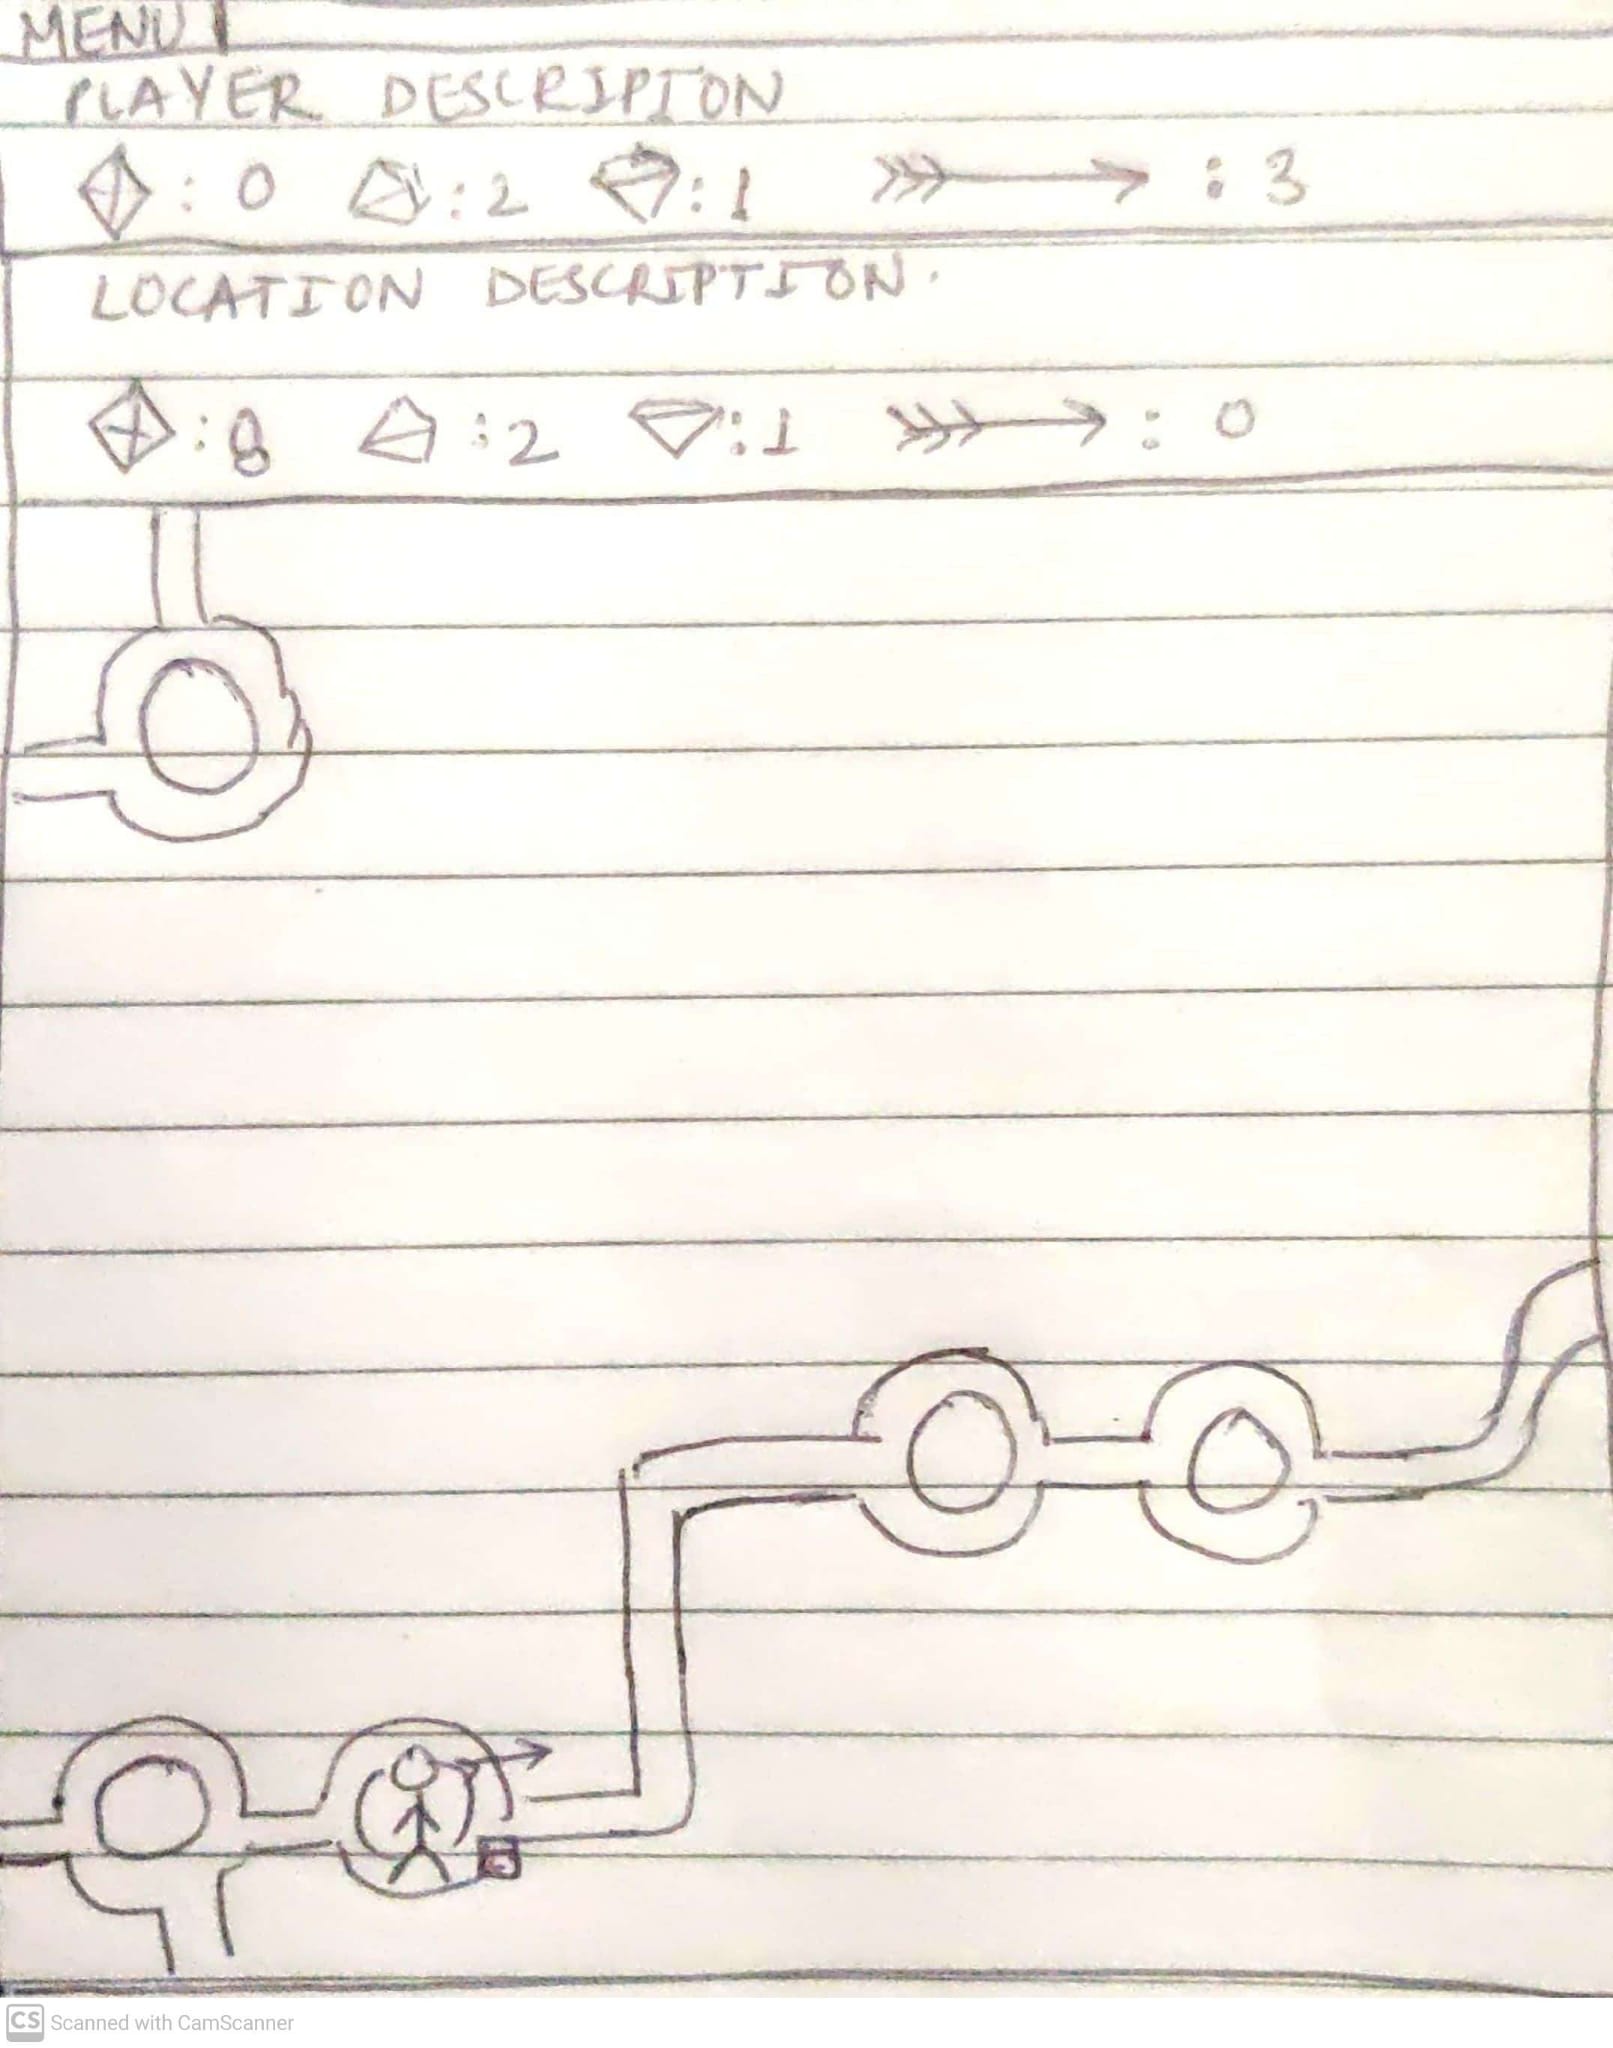 MENU
PLAYER DESCRIPTON
: 0 : 2 : 1 : 3
LOCATION DESCRIPTION.
: 8 : 2 : 1 : 0
CS Scanned with CamScanner